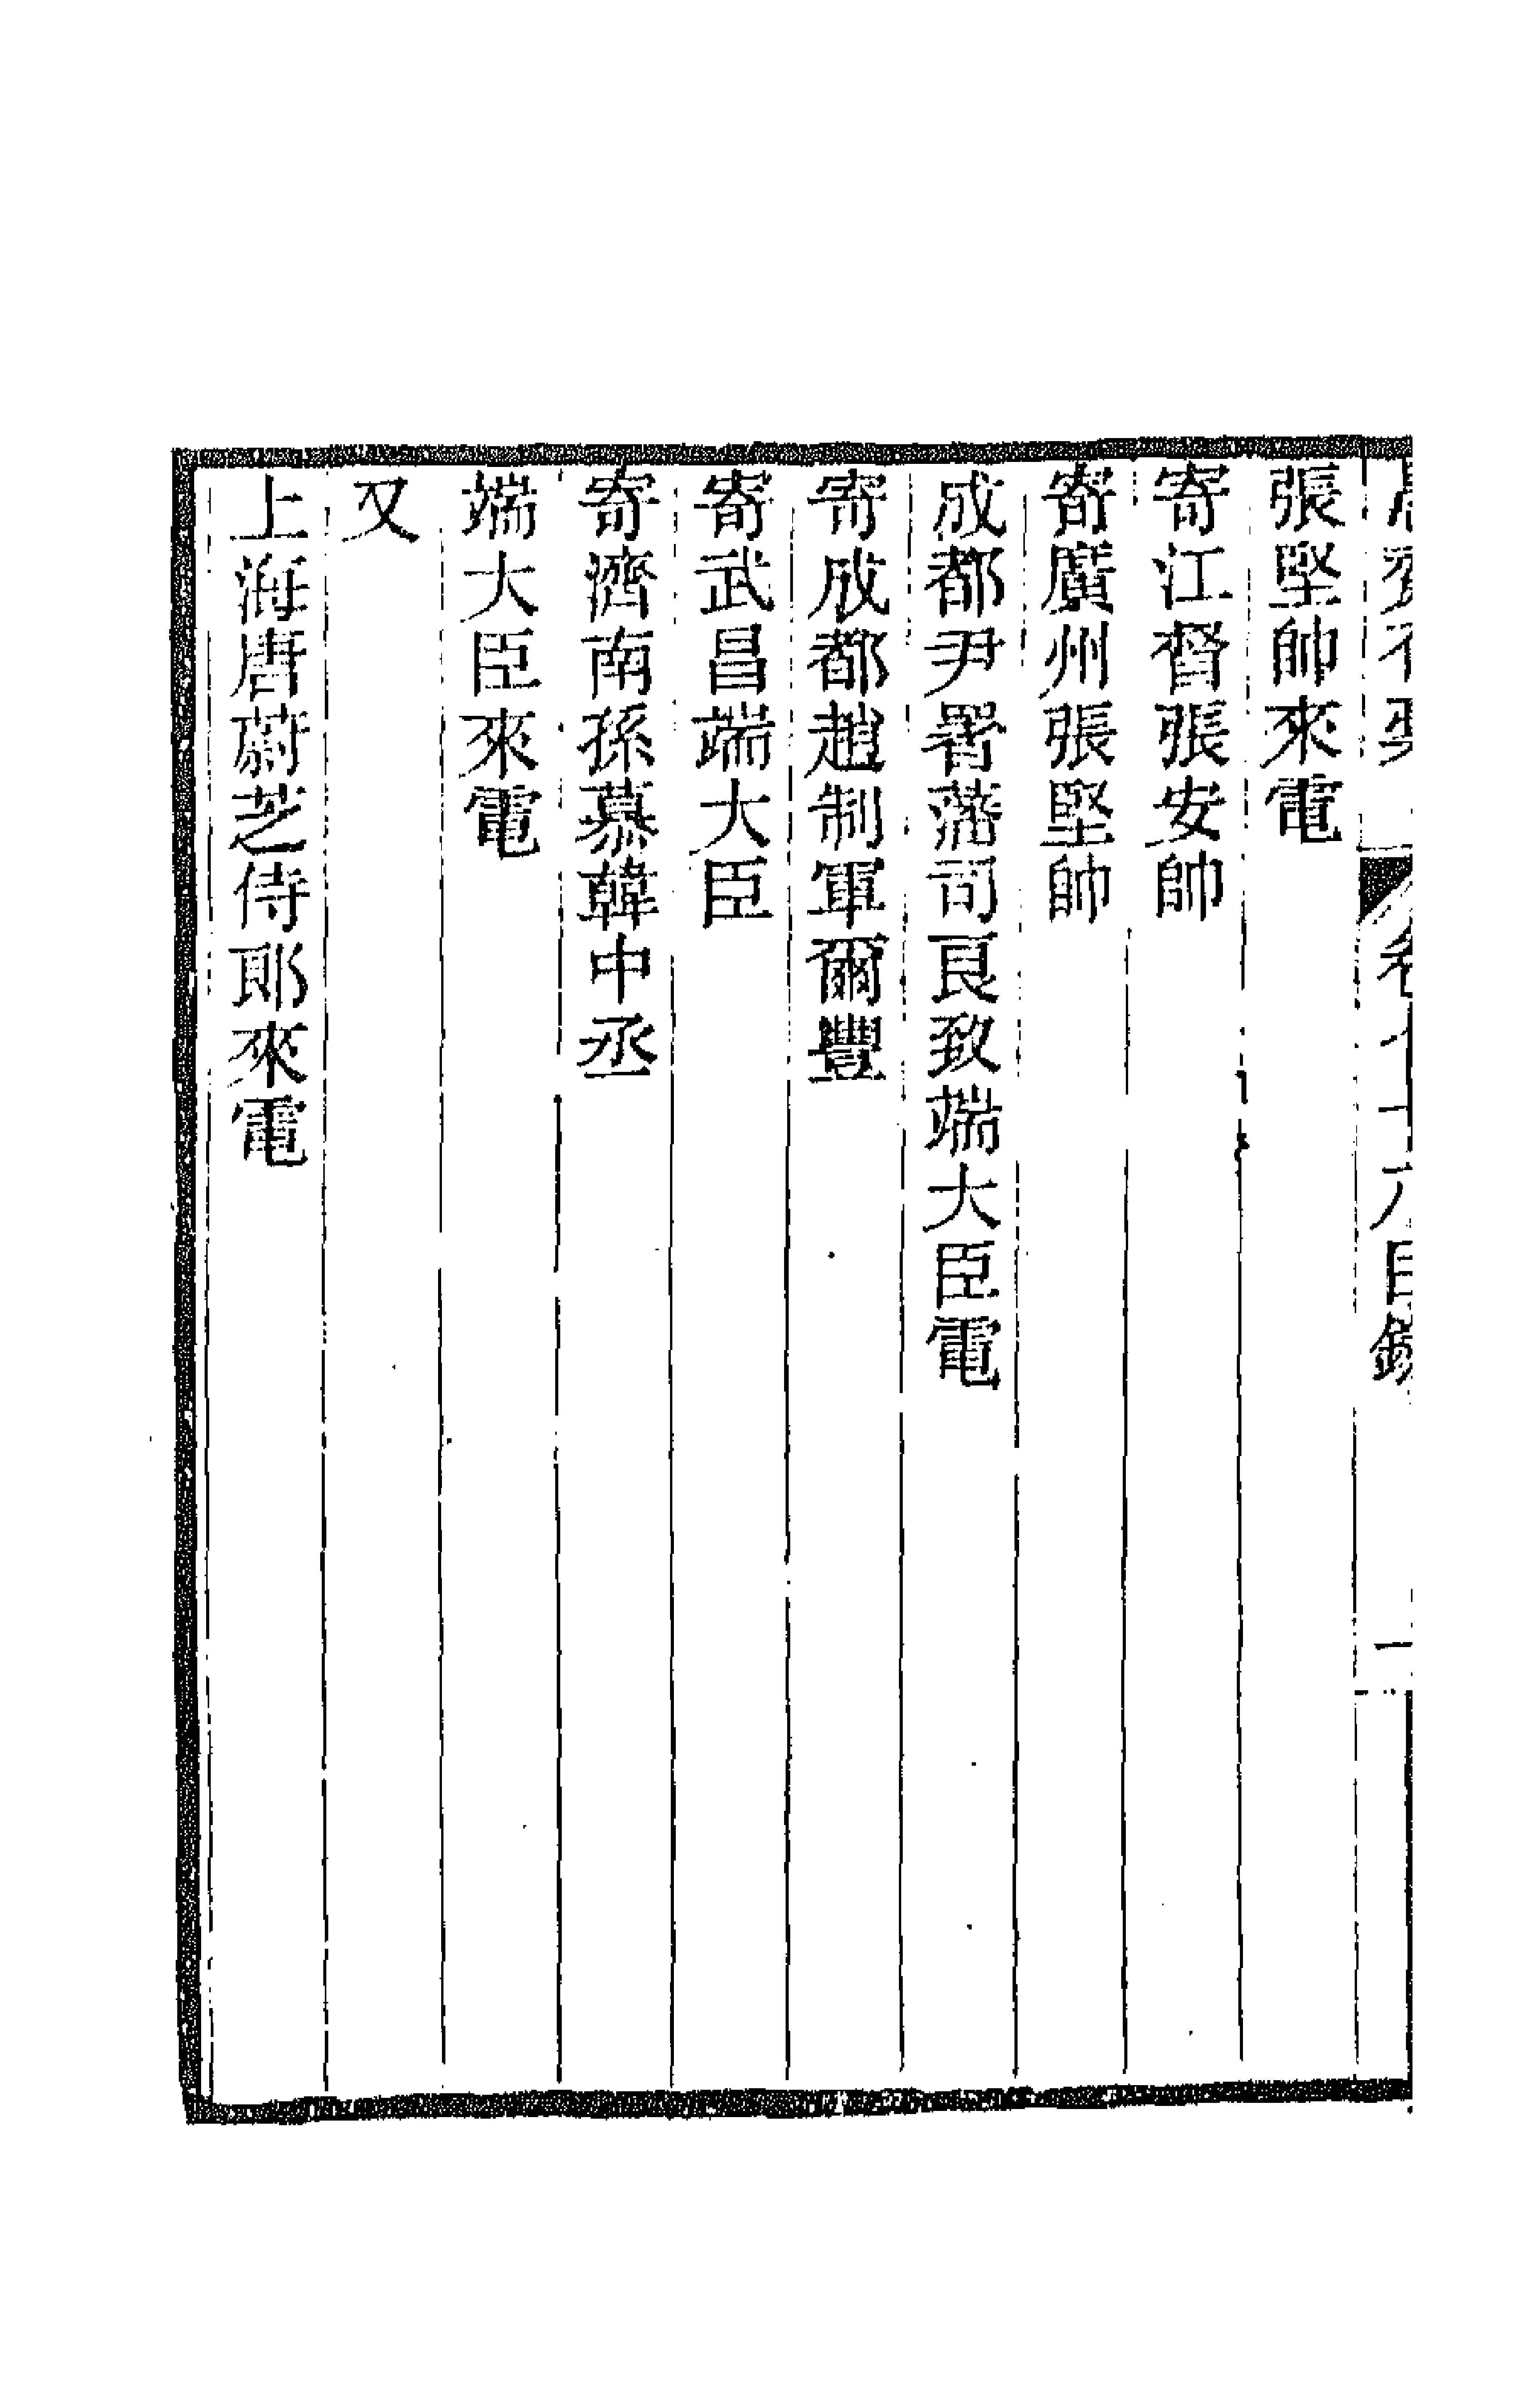 目錄
張堅帥來電
寄江督張安帥
寄廣州張堅帥
成都尹署藩司良致端大臣電
寄成都趙制軍爾豐
寄武昌端大臣
寄濟南孫慕韓中丞
端大臣來電
又
上海唐蔚芝侍郎來電